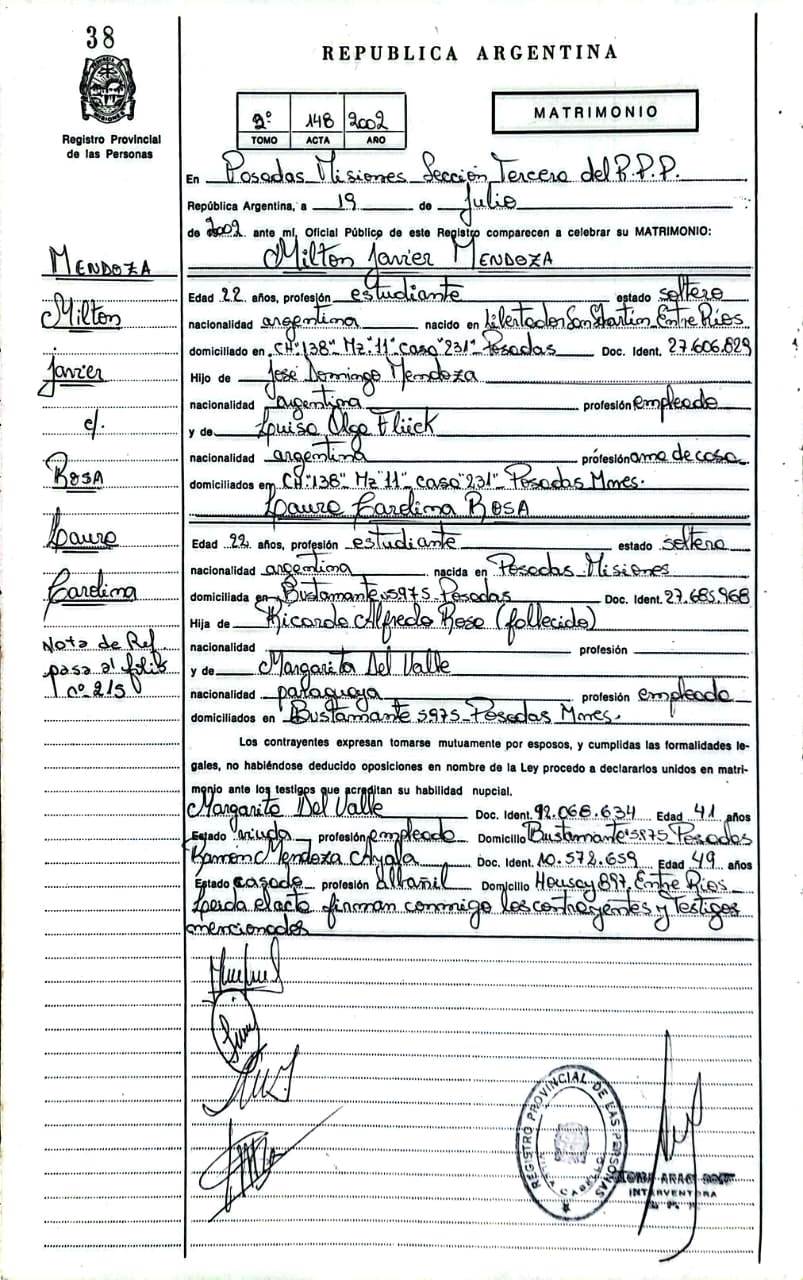 38
REPUBLICA ARGENTINA
Registro Provincial
de las Personas
2º 148 2002
TOMO ACTA AÑO
MATRIMONIO
En Posadas Misiones Sección Tercera del R.P.P.
República Argentina, a 19 de Julio
de 2002 ante mí, Oficial Público de este Registro comparecen a celebrar su MATRIMONIO:
Milton Javier MENDOZA
MENDOZA
Milton
Javier
c/.
ROSA
Laura
Carolina
Nota de Ref
pasa al folio
nº 215
Edad 22 años, profesión estudiante estado soltero
nacionalidad argentina nacido en Libertador San Martin Entre Rios
domiciliado en CH"138" Mz"11" casa"231" Posadas Doc. Ident. 27.606.829
Hijo de José Domingo Mendoza
nacionalidad argentina profesión empleado
y de Luisa Olga Flück
nacionalidad argentina profesión ama de casa
domiciliados en CH"138" Mz"11" casa"231" Posadas Mnes.
Laura Carolina ROSA
Edad 22 años, profesión estudiante estado soltera
nacionalidad argentina nacida en Posadas Misiones
domiciliada en Bustamante 5975 Posadas Doc. Ident. 27.685.968
Hija de Ricardo Alfredo Rosa (fallecido)
nacionalidad profesión
y de Margarita Del Valle
nacionalidad paraguaya profesión empleada
domiciliados en Bustamante 5975 Posadas Mnes.
Los contrayentes expresan tomarse mutuamente por esposos, y cumplidas las formalidades le-
gales, no habiéndose deducido oposiciones en nombre de la Ley procedo a declararlos unidos en matri-
monio ante los testigos que acreditan su habilidad nupcial.
Margarita Del Valle Doc. Ident. 92.068.634 Edad 41 años
Estado viuda profesión empleada Domicilio Bustamante 5975 Posadas
Ramón Mendoza Ayala Doc. Ident. 10.572.659 Edad 49 años
Estado casado profesión albañil Domicilio Housay 897, Entre Rios
Leida el acta firman conmigo los contrayentes y testigos
mencionados
REGISTRO PROVINCIAL DE LAS PERSONAS
INTERVENTORA